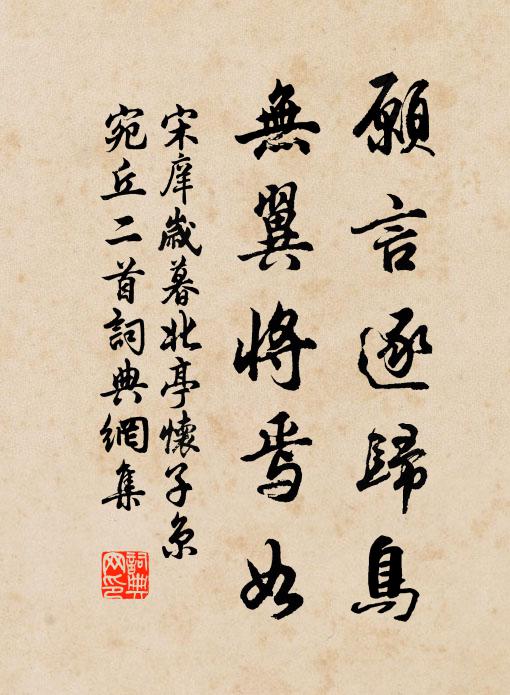 願言逐歸鳥
無翼將焉如
宋庠歲暮北亭懷子京
宛丘二首詞典網集
詞典網印